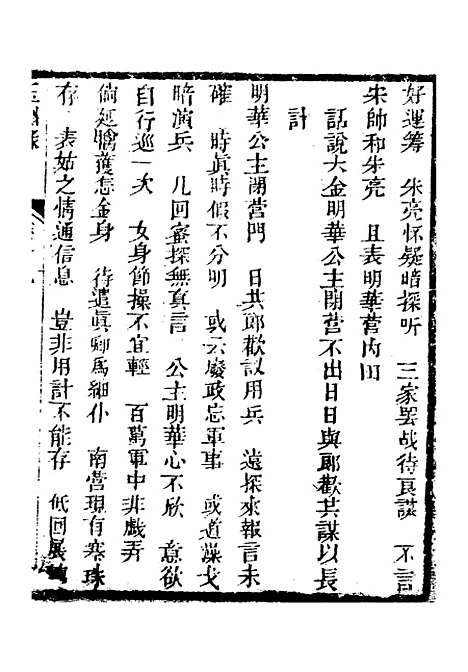 好運籌　朱亮怀疑暗探听　三家罢战待良謀　不言
朱帥和朱亮　且表明華营内田
話說大金明華公主閉营不出日日與郎歡共謀以長
計
明華公主閉营門　日共郎歡議用兵　遠探來報言未
確　時真時假不分明　或云廢政忘軍事　或道藻戈
暗演兵　几回蜜探無真言　公主明華心不欣　意欲
自行巡一次　女身節操不宜輕　百萬軍中非戲弄
倘延　怎金身　待遣真卿爲細仆　南营現有寒珠
存　表姑之情通信息　豈非用計不能存　低回展